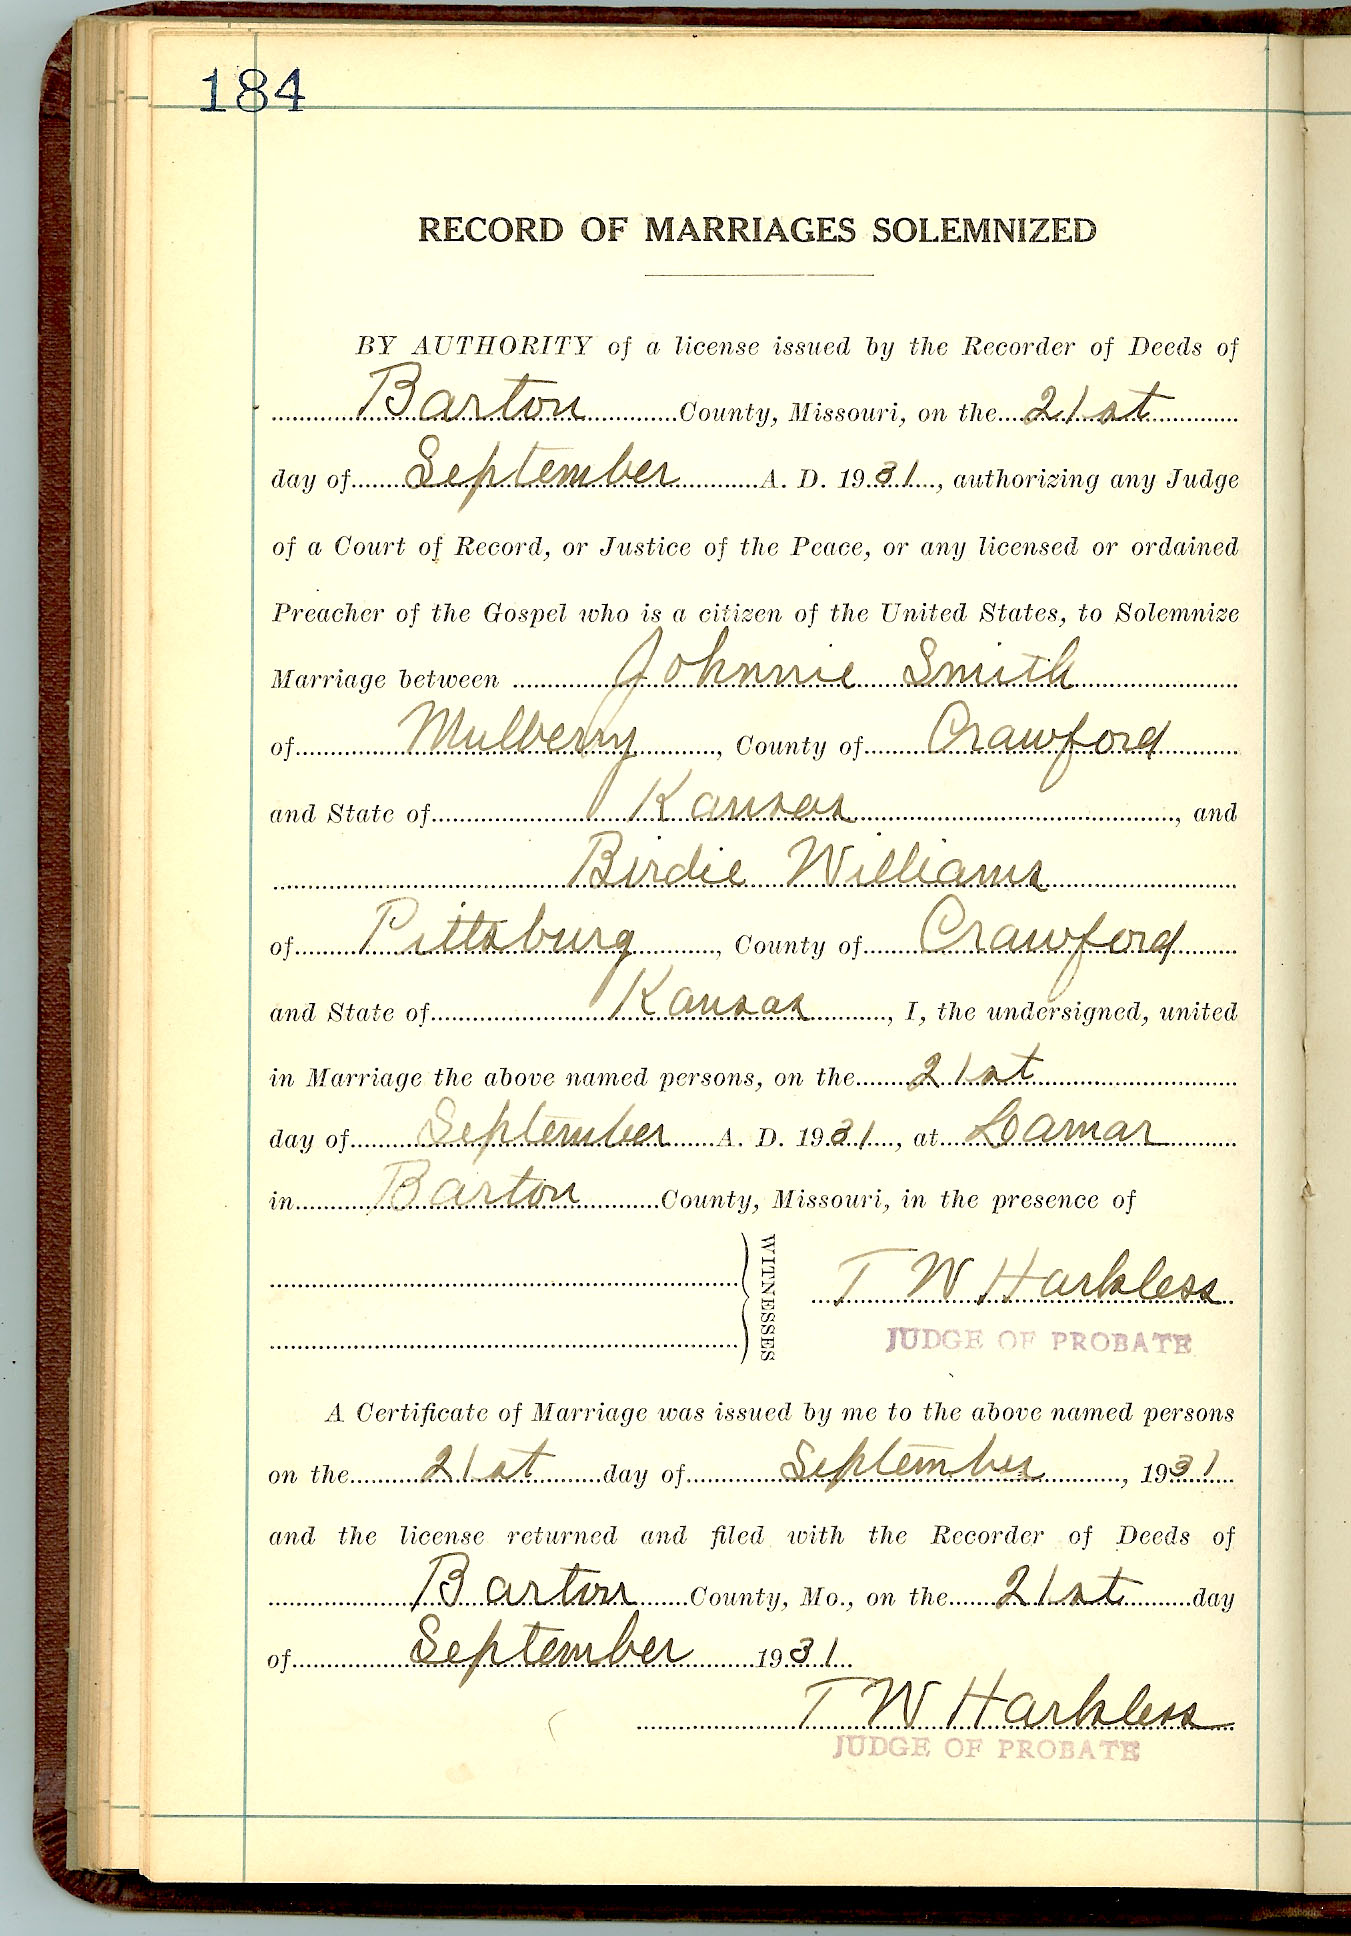 184
RECORD OF MARRIAGES SOLEMNIZED
BY AUTHORITY of a license issued by the Recorder of Deeds of
Barton County, Missouri, on the 21st
day of September A. D. 1931, authorizing any Judge
of a Court of Record, or Justice of the Peace, or any licensed or ordained
Preacher of the Gospel who is a citizen of the United States, to Solemnize
Marriage between Johnnie Smith
of Mulberry, County of Crawford
and State of Kansas, and
Birdie Williams
of Pittsburg, County of Crawford
and State of Kansas, I, the undersigned, united
in Marriage the above named persons, on the 21st
day of September A. D. 1931, at Lamar
in Barton County, Missouri, in the presence of
WITNESSES
T W Harkless
JUDGE OF PROBATE
A Certificate of Marriage was issued by me to the above named persons
on the 21st day of September, 1931
and the license returned and filed with the Recorder of Deeds of
Barton County, Mo., on the 21st day
of September 1931
T W Harkless
JUDGE OF PROBATE